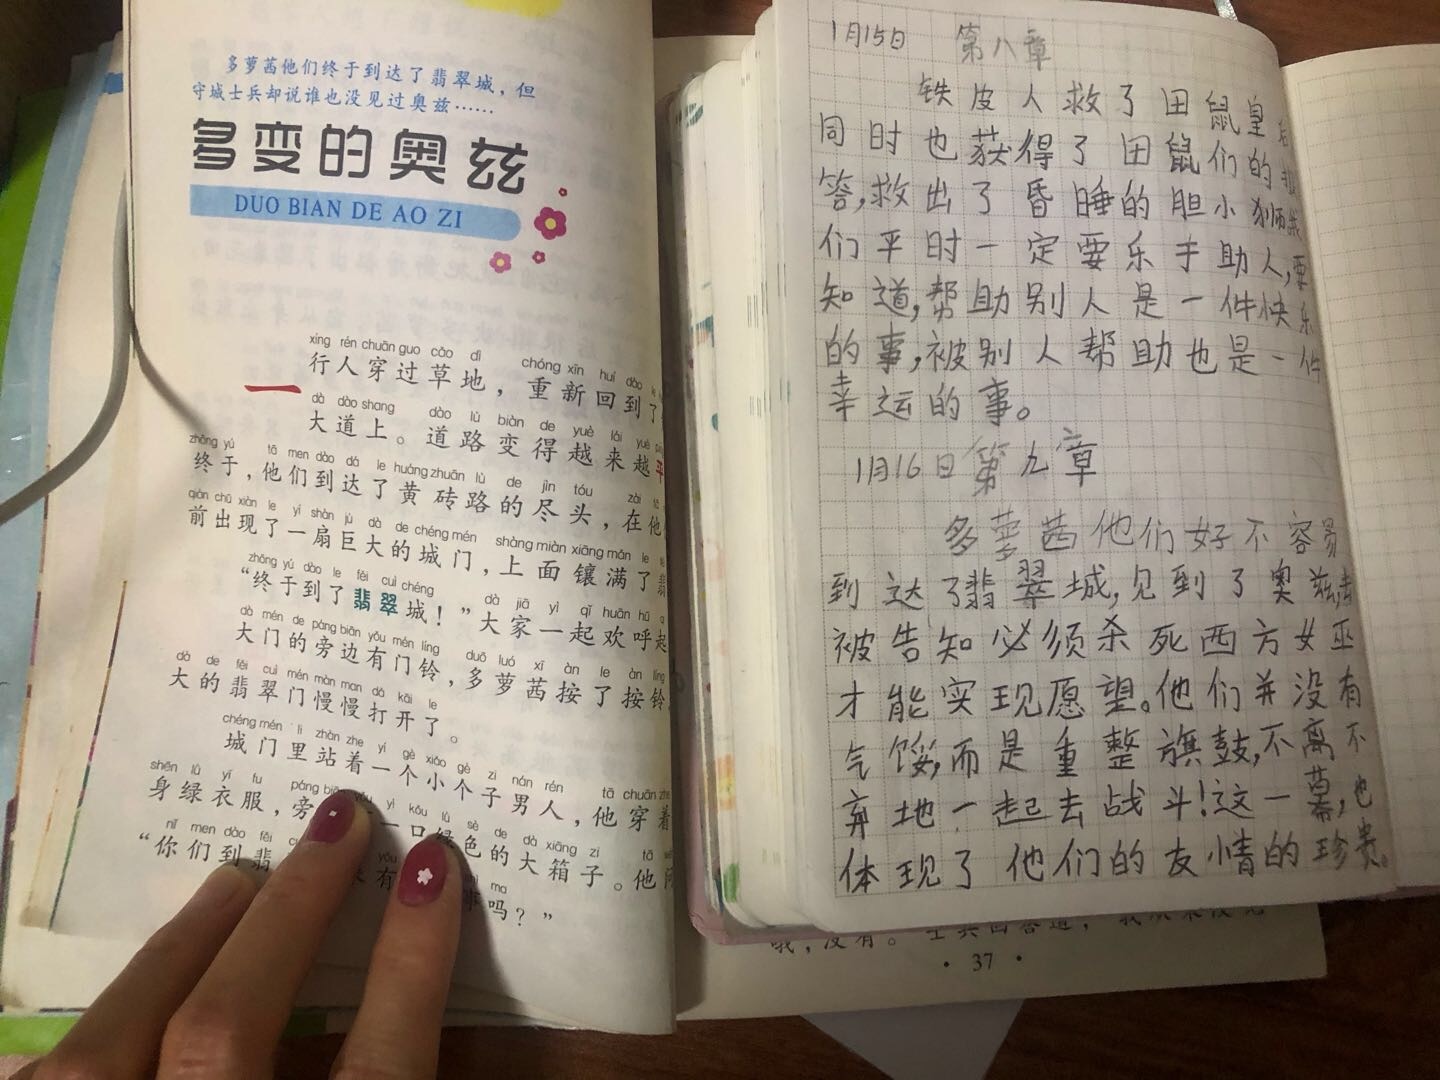 多萝茜他们终于到达了翡翠城，但
守城士兵却说谁也没见过奥兹……
多变的奥兹
DUO BIAN DE AO ZI
xíng rén chuān guo cǎo dì chóng xīn huí dào le
一行人穿过草地，重新回到了
dà dào shang dào lù biàn de yuè lái yuè píng
大道上。道路变得越来越平
zhōng yú tā men dào dá le huáng zhuān lù de jìn tóu zài tā
终于，他们到达了黄砖路的尽头，在他
qián chū xiàn le yí shàn jù dà de chéng mén shàng miàn xiāng mǎn le
前出现了一扇巨大的城门，上面镶满了翡
zhōng yú dào le fěi cuì chéng dà jiā yì qǐ huān hū
“终于到了翡翠城！”大家一起欢呼起
dà mén de páng biān yǒu mén líng duō luó xī àn le àn líng
大门的旁边有门铃，多萝茜按了按铃
dà de fěi cuì mén màn man dǎ kāi le
大的翡翠门慢慢打开了。
chéng mén li zhàn zhe yí gè xiǎo gè zi nán rén tā chuān zhe
城门里站着一个小个子男人，他穿着
shēn lǜ yī fu páng yì kǒu lǜ sè de dà xiāng zi tā
身绿衣服，旁一口绿色的大箱子。他
nǐ men dào fěi ma
“你们到翡有事吗？”
1月15日 第八章
铁皮人救了田鼠皇后
同时也获得了田鼠们的报
答，救出了昏睡的胆小狮我
们平时一定要乐于助人，要
知道，帮助别人是一件快乐
的事，被别人帮助也是一件
幸运的事。
1月16日 第九章
多萝茜他们好不容易
到达了翡翠城，见到了奥兹，
被告知必须杀死西方女巫
才能实现愿望。他们并没有
气馁，而是重整旗鼓，不离不
弃地一起去战斗！这一幕，也
体现了他们的友情的珍贵。
哦，没有。”士兵回答道，
·37·